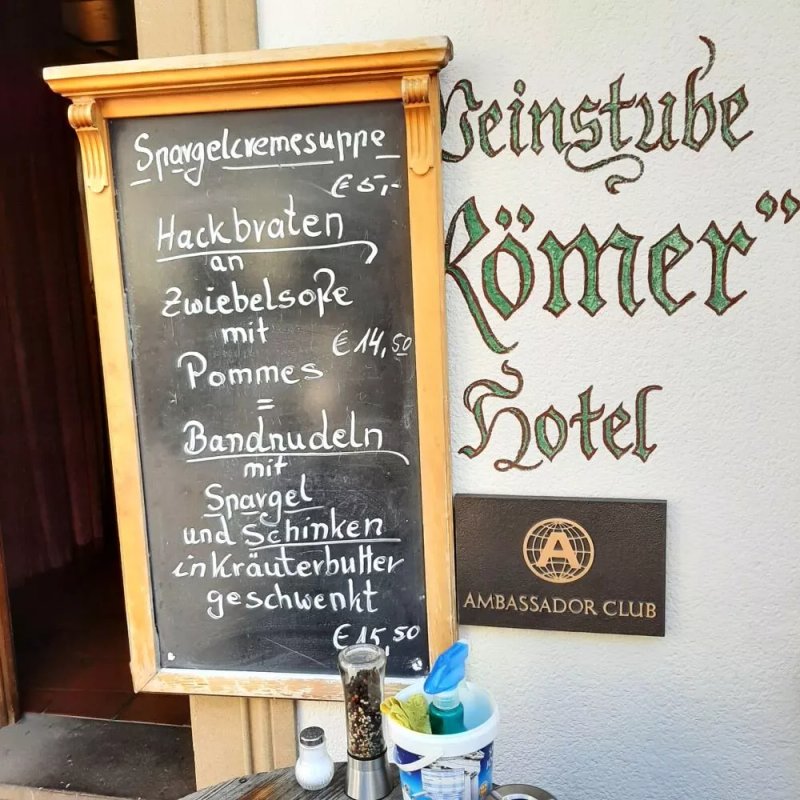 Spargelcremesuppe
€ 5,-
Hackbraten
an
Zwiebelsoße
mit
€ 14,50
Pommes
=
Bandnudeln
mit
Spargel
und Schinken
in Kräuterbutter
geschwenkt
€ 15,50
Weinstube
Römer”
Hotel
A
AMBASSADOR CLUB